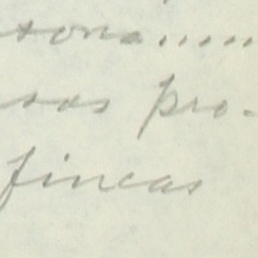 sona.....
sas pro-
fincas